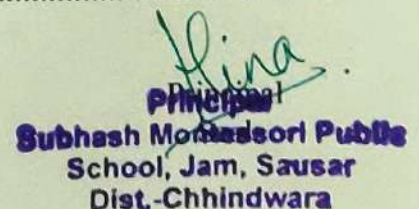 Hina
Principal
Subhash Montessori Public
School, Jam, Sausar
Dist.-Chhindwara